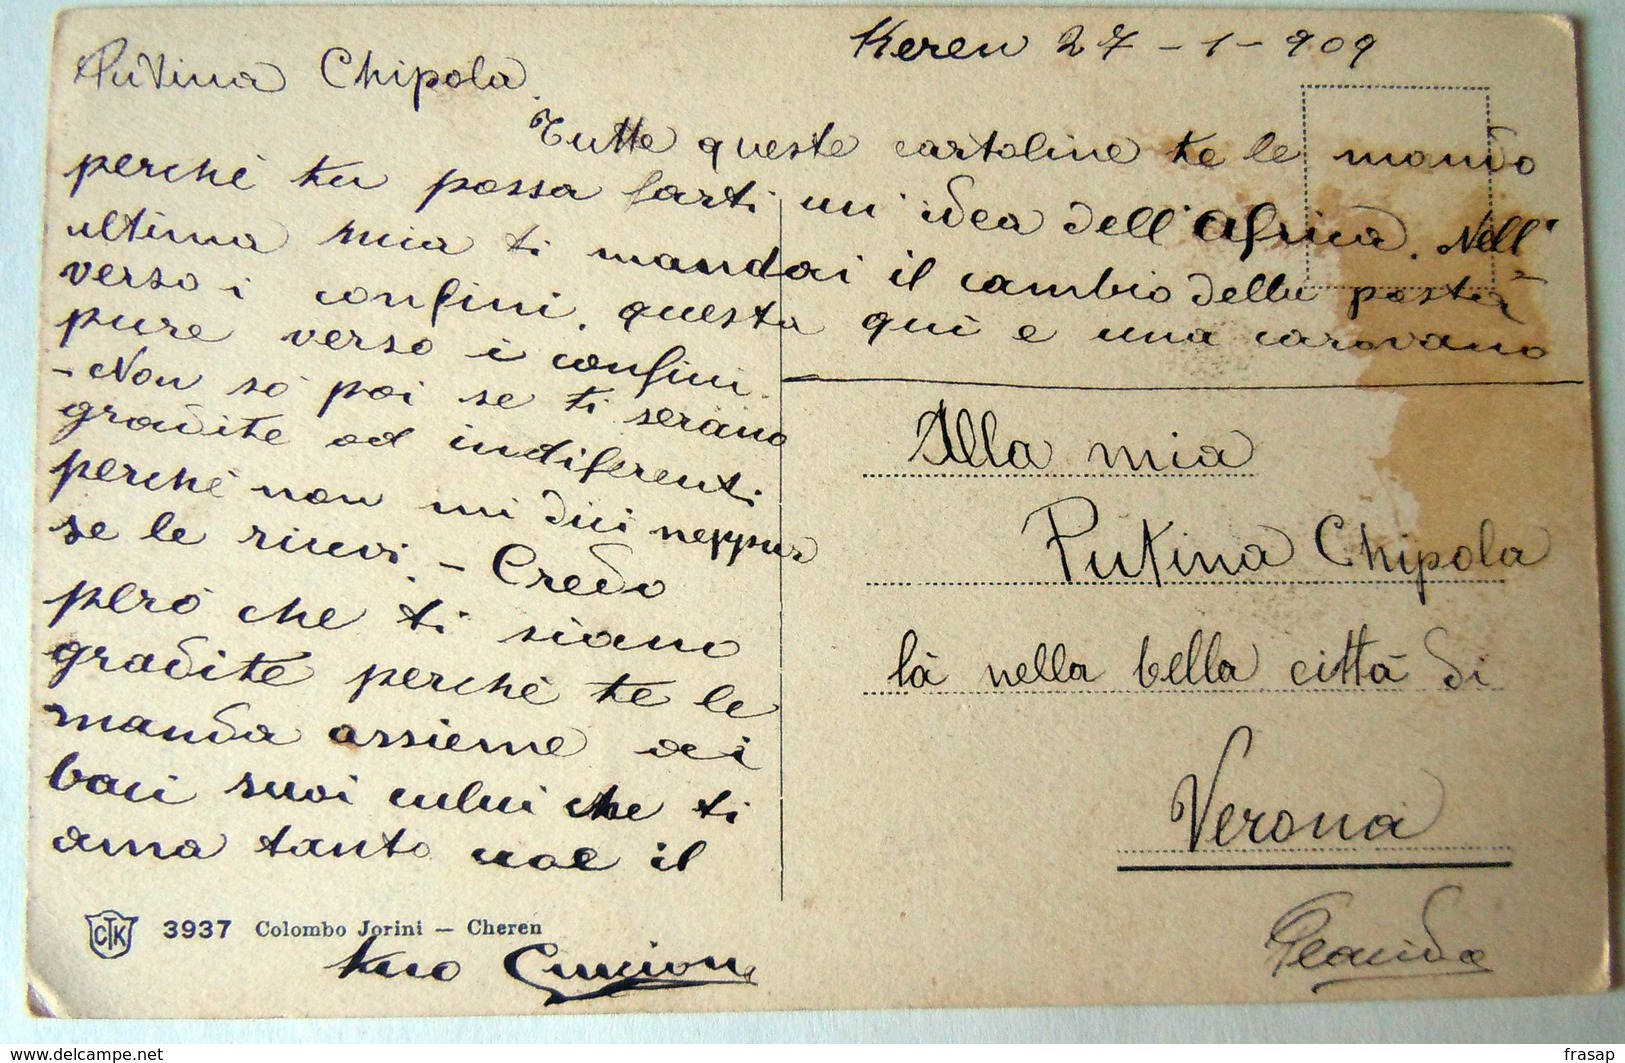 Keren 27-1-909
Putina Chipola.
Tutte queste cartoline te le mando
perchè tu possa farti un'idea dell'Africa. Nell'
ultima mia ti mandai il cambio della posta
verso i confini, questa quì e una carovana
pure verso i confini.
- Non sò poi se ti serano
gradite od indifferenti
perchè non mi dici neppur
se le ricevi. - Credo
però che ti siano
gradite perchè te le
manda assieme ai
baci suoi colui che ti
ama tanto il
tuo
Alla mia
Putina Chipola
là nella bella città di
Verona
CTK 3937 Colombo Jorini — Cheren
www.delcampe.net
frasap